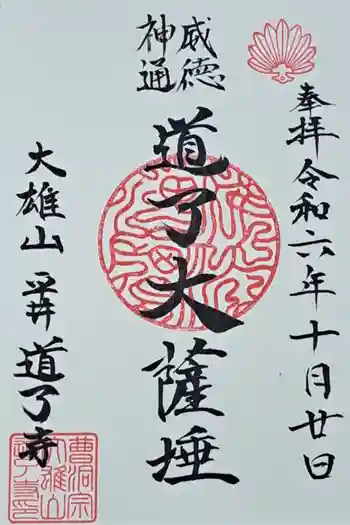 奉拝 令和六年十月廿日
威徳
神通
道了大薩埵
大雄山 道了寺
曹洞宗
大雄山
道了寺印